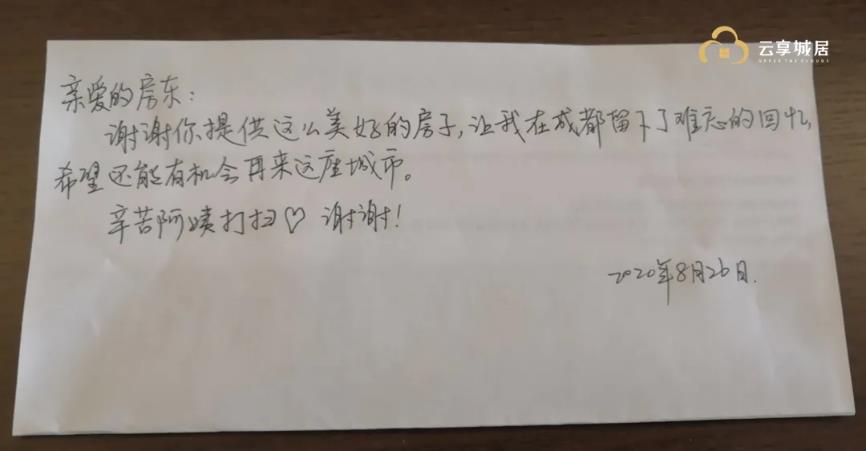 云享城居
UPPER THE CLOUDS
亲爱的房东：
谢谢你提供这么美好的房子，让我在成都留下了难忘的回忆，
希望还能有机会再来这座城市。
辛苦阿姨打扫♡ 谢谢！
2020年8月26日.